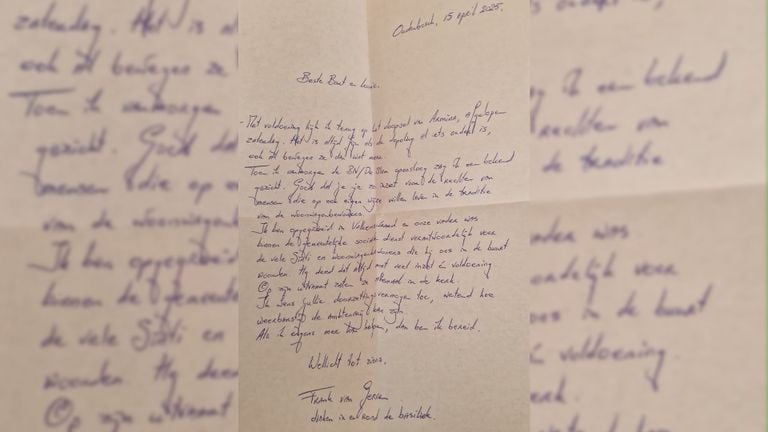 Oudenbosch, 15 april 2025.
Beste Bart en
- Met voldoening kijk ik terug op het doopsel van afgelopen
zaterdag. Het is altijd fijn als de dopeling al iets ouder is,
ook al bewegen ze dan wat meer.
Toen ik vanmorgen de BN/De Stem opensloeg zag ik een bekend
gezicht. Goed dat je je zo inzet voor de rechten van
mensen die op een eigen wijze willen leven in de traditie
van de woonwagenbewoners.
Ik ben opgegroeid in en onze vader was
binnen de gemeentelijke sociale dienst verantwoordelijk voor
de vele Sinti en woonwagenbewoners die bij ons in de buurt
woonden. Hij deed dat altijd met veel inzet en voldoening
Op zijn uitvaart zaten ze in de kerk.
Ik wens jullie doorzettingsvermogen toe, wetend hoe
weerbarstig de ambtenarij kan zijn.
Als ik ergens mee kan helpen, dan ben ik bereid.
Wellicht tot ziens.
Frank van Gerven
diaken in en rond de basiliek.